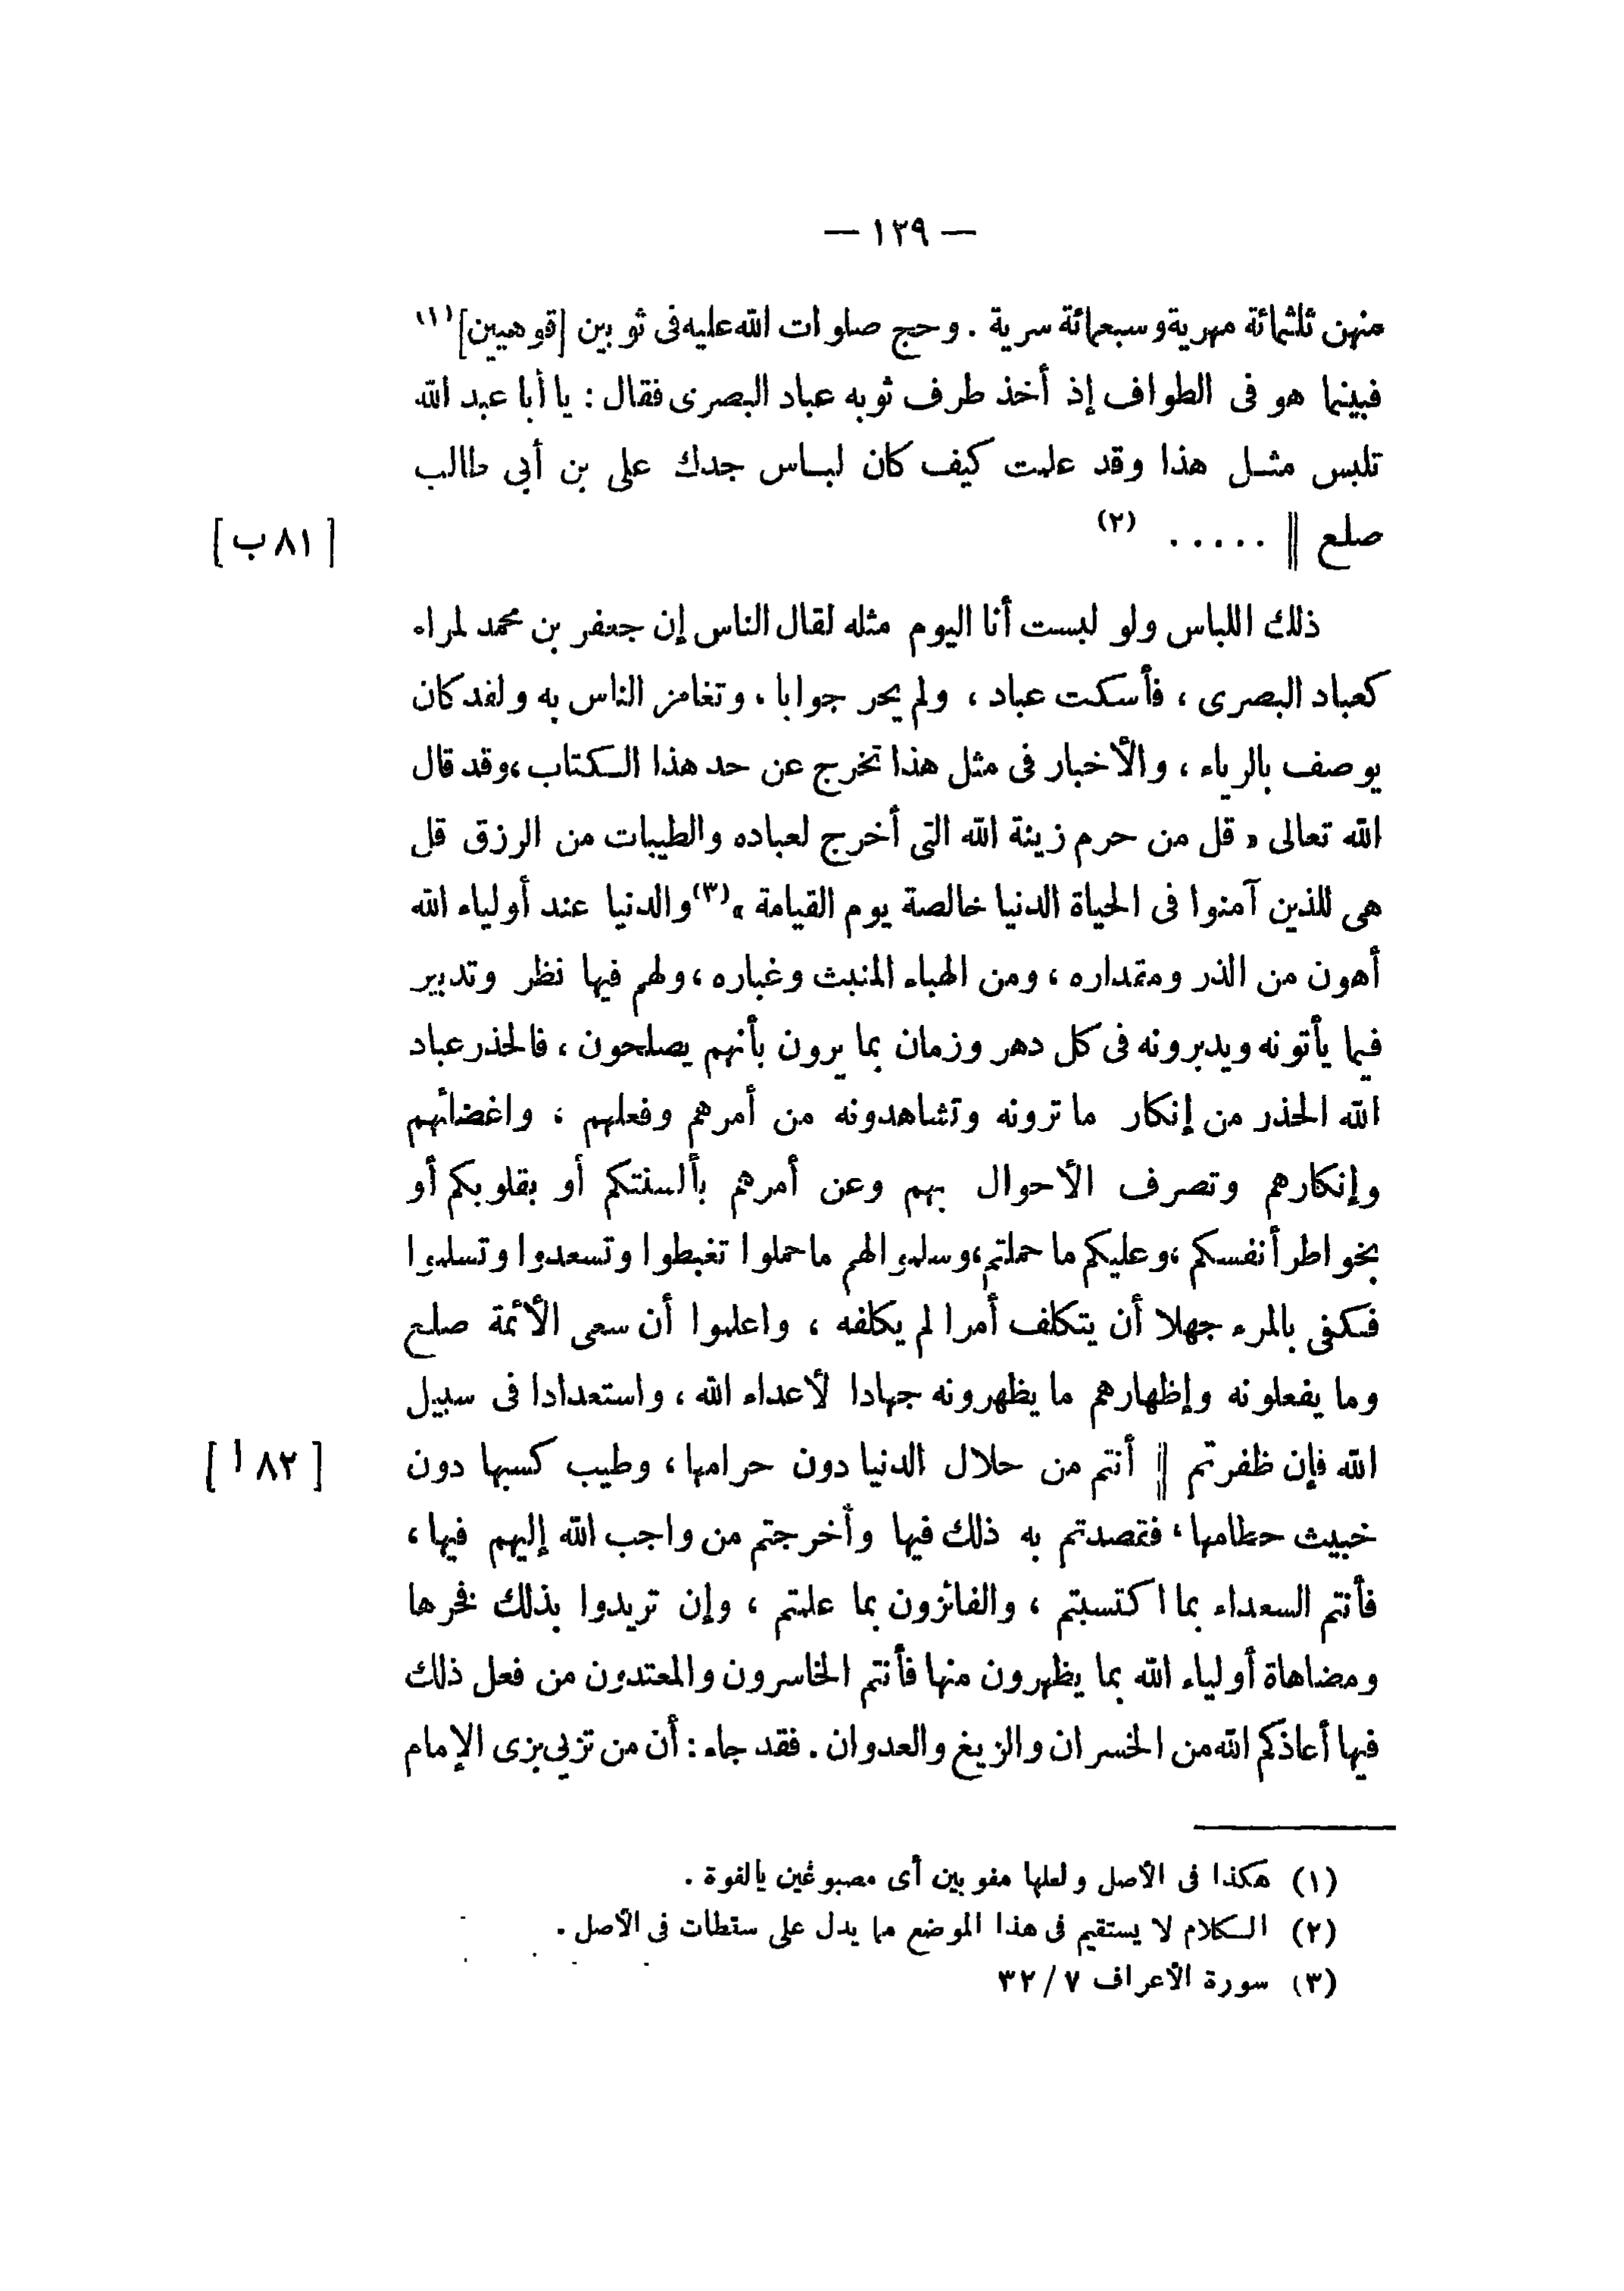 — ١٣٩ —
منهن ثلثمائة مهرية وسبعمائة سرية . وحج صلوات الله عليه فى ثوبين [قوهيين] (١)
فبينما هو فى الطواف إذ أخذ طرف ثوبه عباد البصرى فقال : يا أبا عبد الله
تلبس مثل هذا وقد علمت كيف كان لباس جدك على بن أبى طالب
صلع || ..... (٢) [ ٨١ ب ]
ذلك اللباس ولو لبست أنا اليوم مثله لقال الناس إن جعفر بن محمد لمراء
كعباد البصرى ، فأسكت عباد ، ولم يحر جوابا . وتغامز الناس به ولقد كان
يوصف بالرياء ، والأخبار فى مثل هذا تخرج عن حد هذا الكتاب ، وقد قال
الله تعالى « قل من حرم زينة الله التى أخرج لعباده والطيبات من الرزق قل
هى للذين آمنوا فى الحياة الدنيا خالصة يوم القيامة » (٣) والدنيا عند أولياء الله
أهون من الذر ومقداره ، ومن الهباء المنبث وغباره ، ولهم فيها نظر وتدبير
فيما يأتونه ويدبرونه فى كل دهر وزمان بما يرون بأنهم يصلحون ، فالحذر عباد
الله الحذر من إنكار ما ترونه وتشاهدونه من أمرهم وفعلهم ، واغضائهم
وإنكارهم وتصرف الأحوال بهم وعن أمرهم بألسنتكم أو بقلوبكم أو
بخواطر أنفسكم ، وعليكم ما حملتم ، وسلموا لهم ما حملوا تغبطوا وتسعدوا وتسلموا
فكفى بالمرء جهلا أن يتكلف أمرا لم يكلفه ، واعلموا أن سعى الأئمة صلع
وما يفعلونه وإظهارهم ما يظهرونه جهادا لأعداء الله ، واستعدادا فى سبيل
الله فإن ظفرتم || أنتم من حلال الدنيا دون حرامها ، وطيب كسبها دون [ ٨٢ ا ]
خبيث حطامها ، فقصدتم به ذلك فيها وأخرجتم من واجب الله إليهم فيها ،
فأنتم السعداء بما اكتسبتم ، والفائزون بما علمتم ، وإن تريدوا بذلك فخرها
ومضاهاة أولياء الله بما يظهرون منها فأنتم الخاسرون والمعتدون من فعل ذلك
فيها أعاذكم الله من الخسران والزيغ والعدوان . فقد جاء : أن من تزيى بزى الإمام
(١) هكذا فى الأصل ولعلها مفوبين أى مصبوغين بالفوة .
(٢) الكلام لا يستقيم فى هذا الموضع مما يدل على سقطات فى الأصل .
(٣) سورة الأعراف ٧ / ٣٢